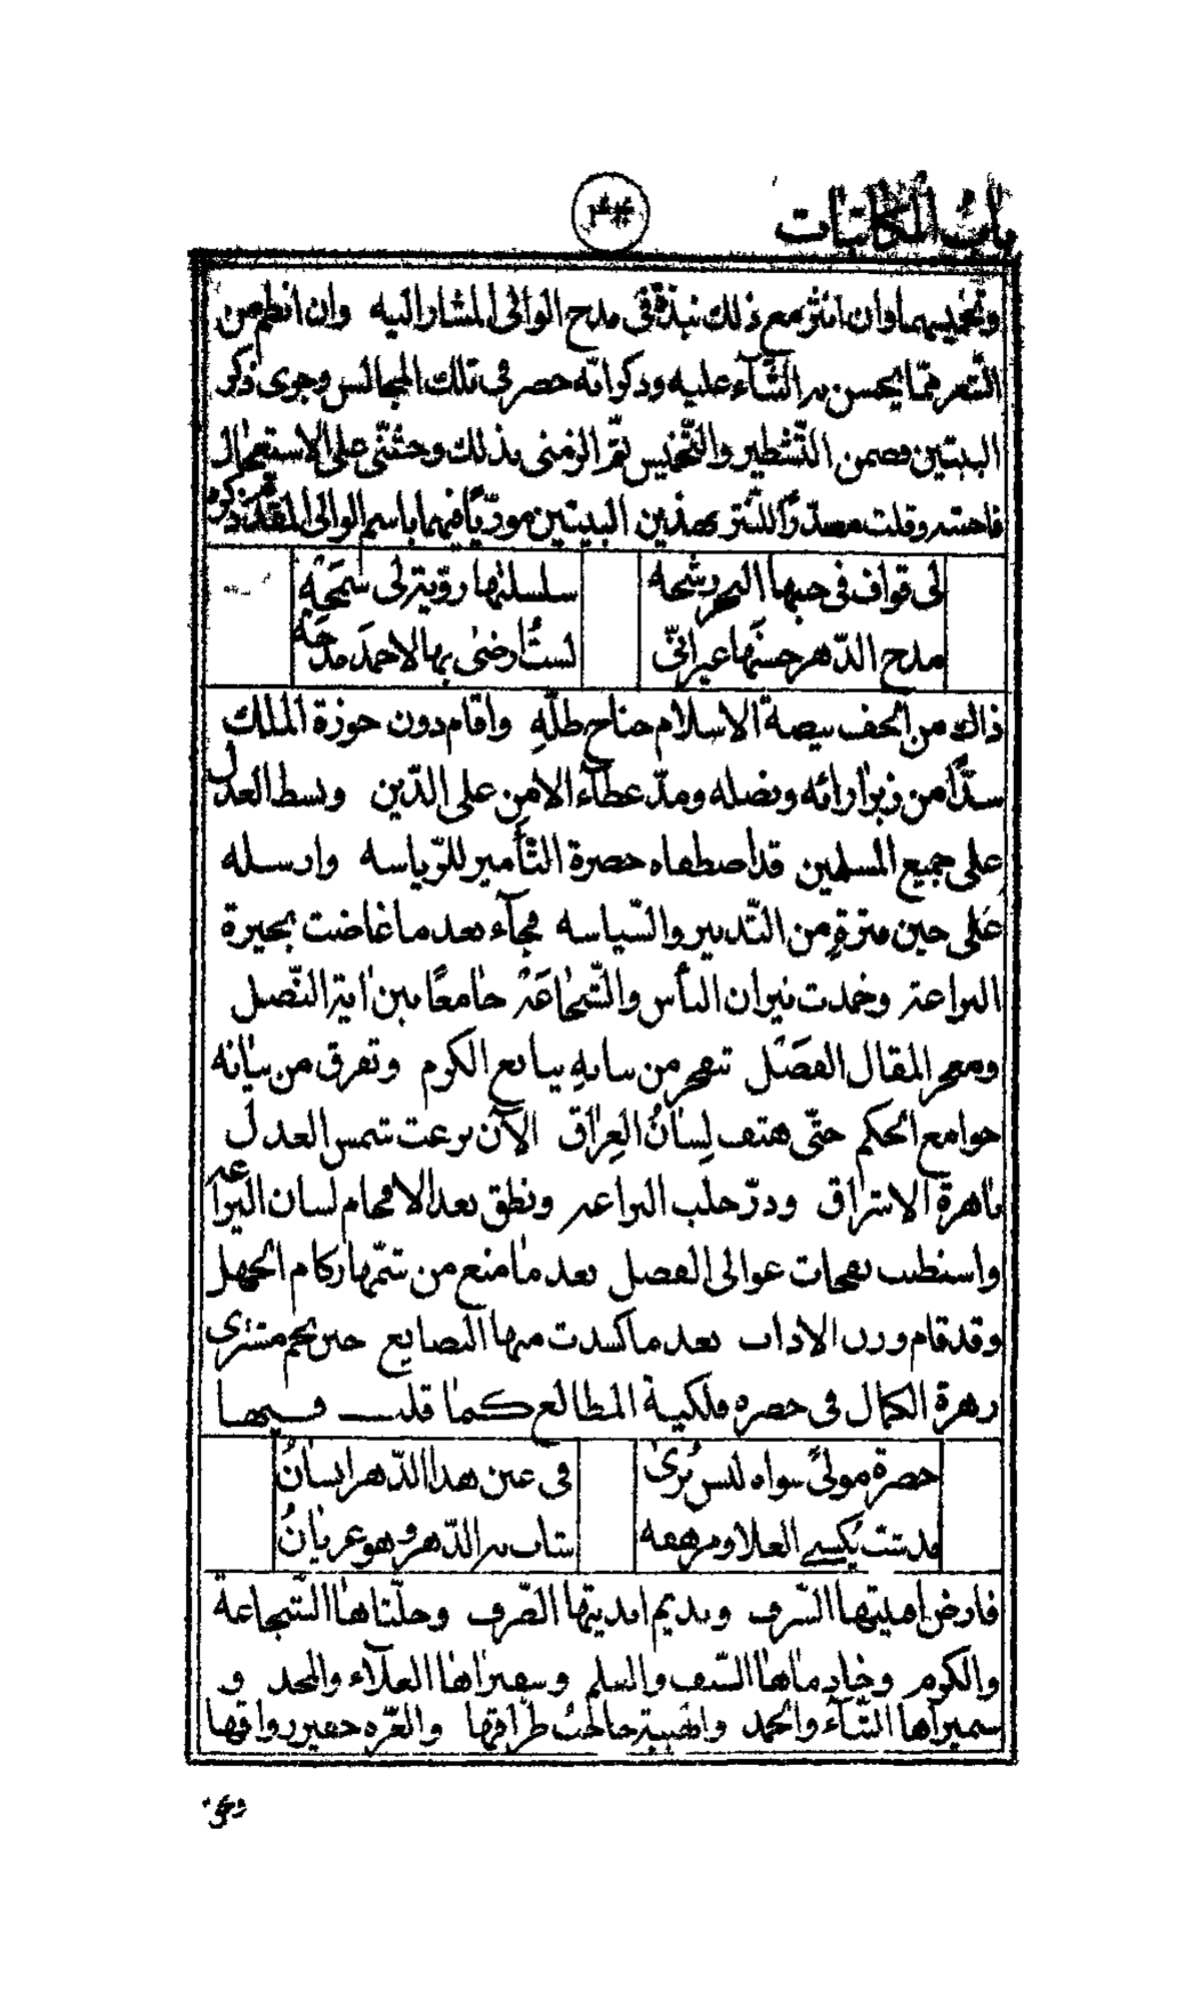 باب المكاتبات
وتخميسهما وان انثر مع ذلك نبذة فى مدح الوالى المشار اليه وان انظم من
الشعر ممّا يحسن به الثنآء عليه وذكر انّه حضر فى تلك المجالس وجرى ذكر
البيتين فضمن التّشطير والتّخميس ثمّ الزمنى بذلك وحثّنى على الاستعجال
فاجبته وقلت مصدّرًا للنّثر بهذين البيتين مورّيًا فيهما باسم الوالى المتقدّم ذكره
لى قواف فى جنبها البحر رشحه
سلسلتها رويّة لى سمحَه
مدح الدّهر حسنها غير انّى
لستُ ارضى بها لاحمدَ مدحَه
ذاك من الحف بيضة الاسلام جناح ظلّهِ واقام دون حوزة الملك
سدًّا من زبر ارائه ونصله ومدّ غطآء الامن على الدّين وبسط العدل
على جميع المسلمين قد اصطفاه حضرة التّأمير للرّياسه وارسله
على حين فترةٍ من التّدبير والسّياسه فجآء بعد ما غاضت بحيرة
البراعة وخمدت نيران البأس والشّجاعَة جامعًا بين اية النّصل
ومعجر المقال الفَصْل تنفجر من بنانهِ ينابيع الكرم وتفرق من بيانه
جوامع الحكم حتّى هتف لِسانُ العِراق الآن بزغت شمس العدل
باهرة الاشراق ودرّ حلب البراعه ونطق بعد الافحام لسان اليراعه
واستطيب نفحات غوالى الفضل بعد ما منع من شمّها زكام الجهل
وقد قام وزن الاداب بعد ما كسدت منها البضايع حين نجم مشترى
زهرة الكمال فى حضره فلكية المطالع كما قلت فيها
حضرة مولىً سواه ليس يُرى
فى عين هذا الدّهر انسانُ
مدّت يُكسى العلا ومرهفه
شاب به الدّهر وهو عريانُ
فارض اهليتها الشّرف ونديم انديتها الظّرف وحلّتاها الشّجاعة
والكرم وخادماها السّيف والقلم وسفيراها العلآء والمجد و
سميراها الثّنآء والحمد والهيبة حاجبُ طرّاقها والعزّه خفير رواقها